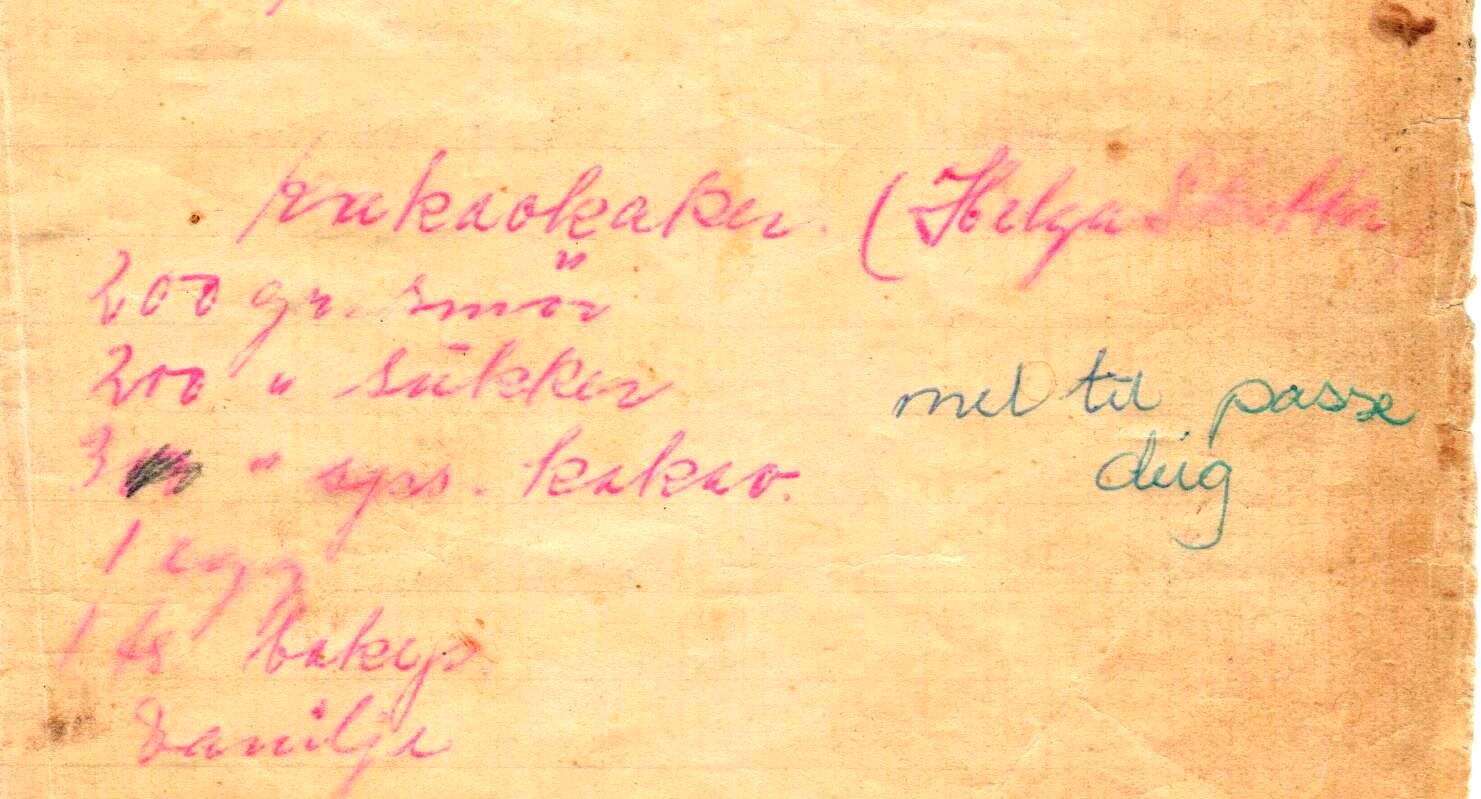 Kakaokaker. (Helga
200 gr. smör
200 " sukker
3 " sps. kakao.
1 egg
1 ts bakep.
Vanilje
mel til passe
deig